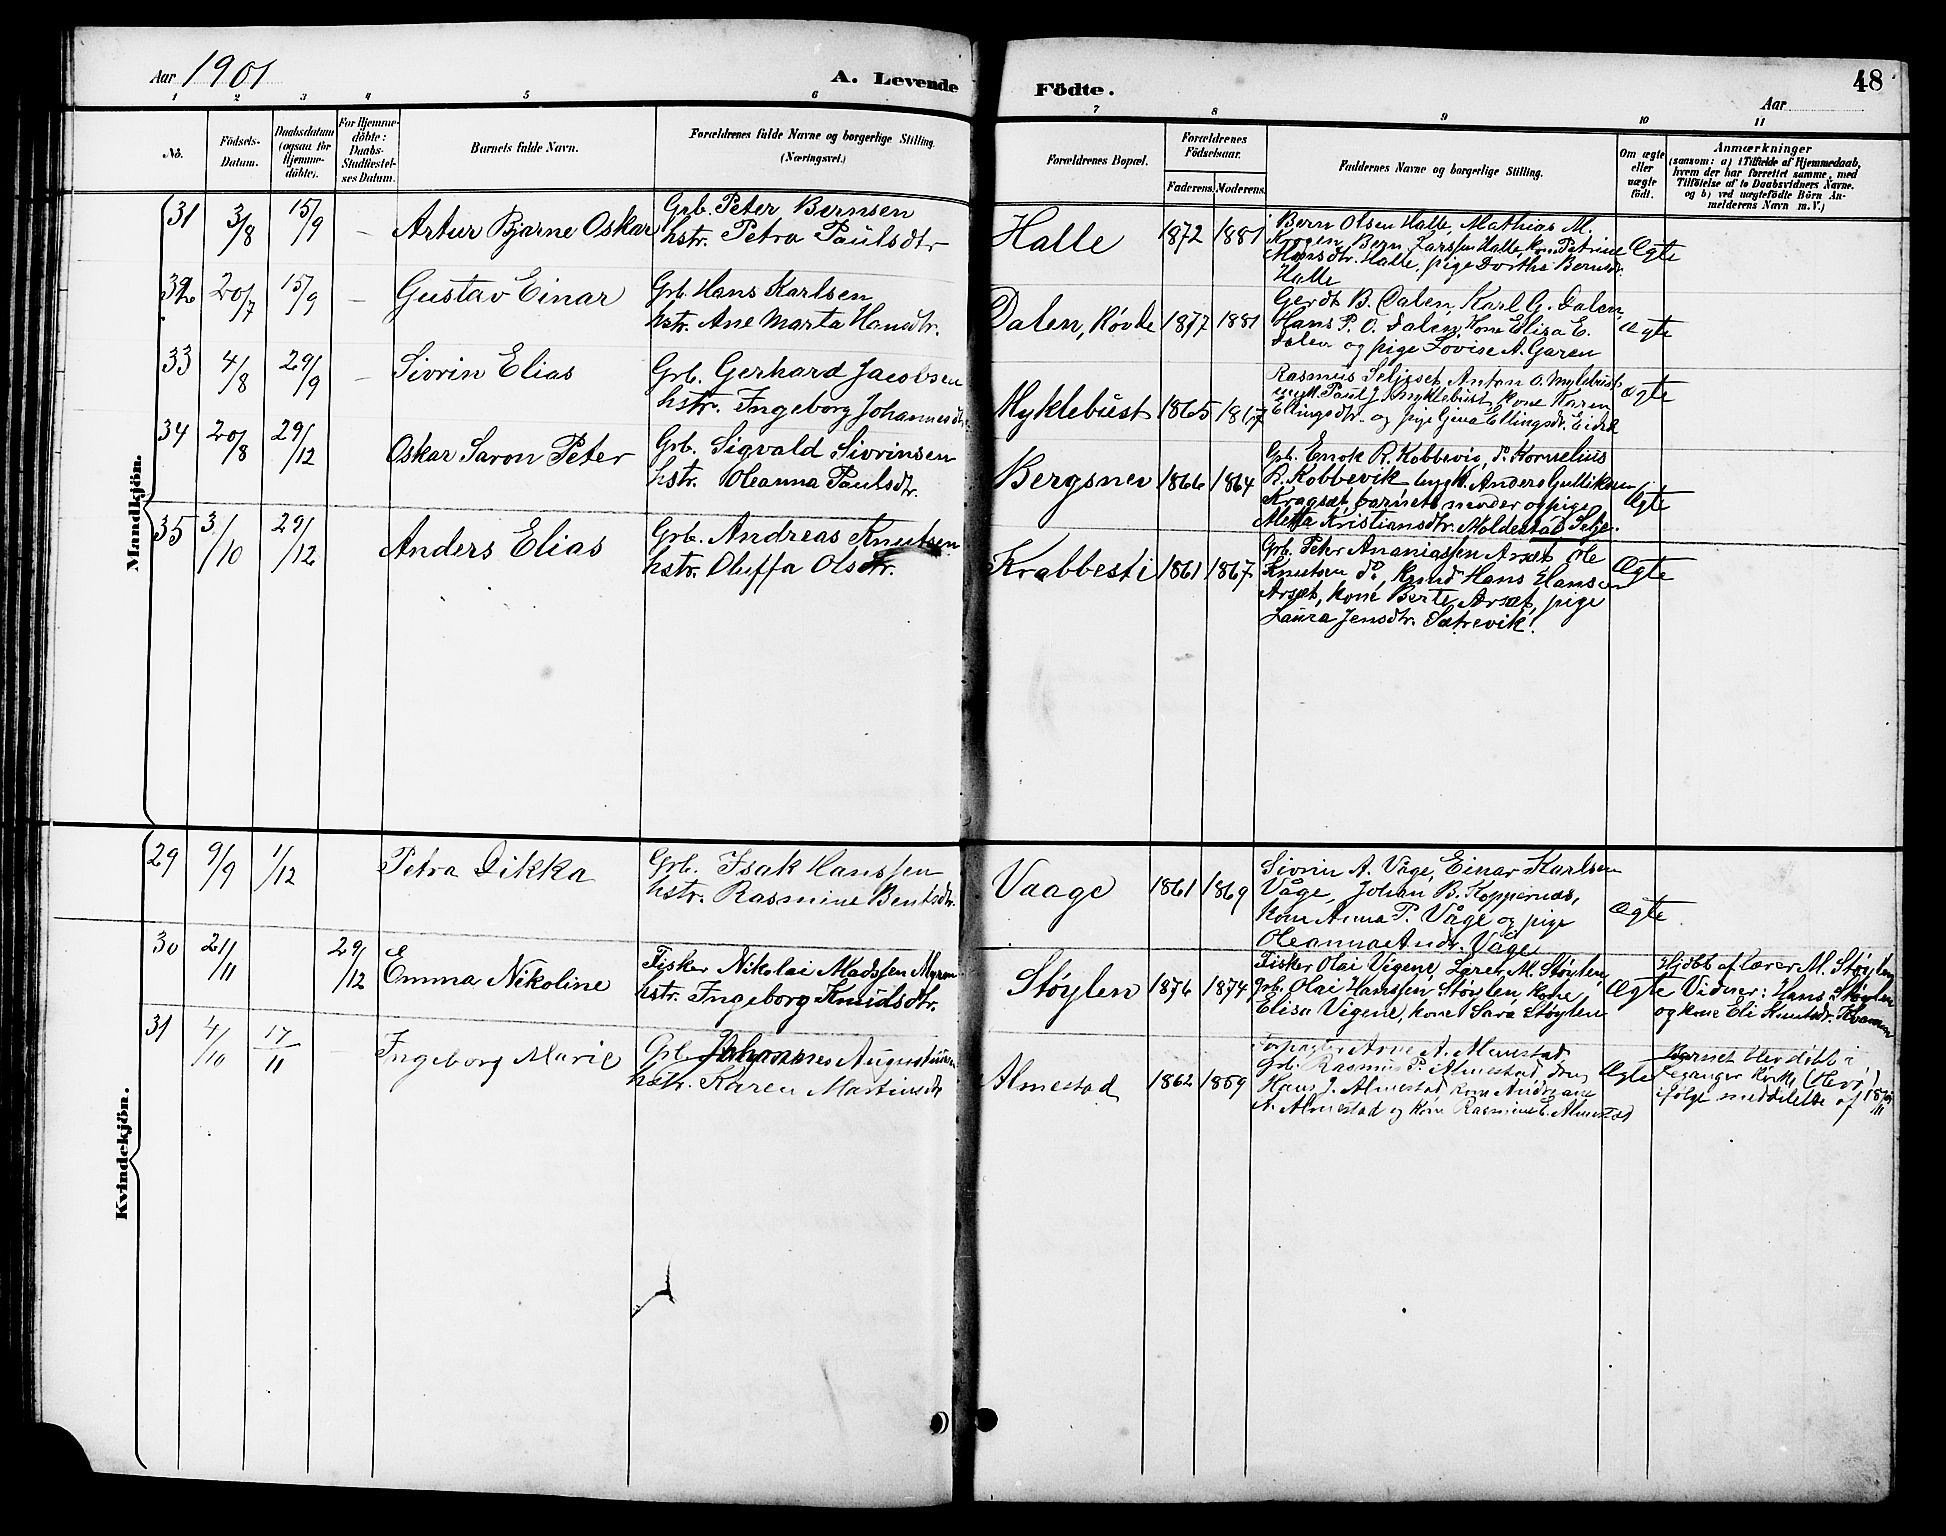 Aar 1901
A. Levende
Födte.
Aar
48
1 2 3 4 5 6 7 8 9 10 11
No.
Födsels-
Datum.
Daabsdatum
(ogsaa for
Hjemme-
döbte).
For Hjemme-
döbte:
Daabs-
Stadfæstel-
ses Datum.
Barnets fulde Navn.
Forældrenes fulde Navne og borgerlige Stilling.
(Næringsvei.)
Forældrenes Bopæl.
Forældrenes
Födselsaar.
Faderens. Moderens.
Faddernes Navne og borgerlige Stilling.
Om ægte
eller
uægte
født.
Anmærkninger
(saasom: a) i Tilfælde af Hjemmedaab,
hvem der har forrettet samme, med
Tilföielse af to Daabsvidners Navne.
og b) ved uægtefödte Börn An-
melderens Navn m. V.)
Mandkjön.
31 3/8 15/9 – Artur Bjarne Oskar
Grb. Peter Bernsen
hstr. Petra Paulsdtr
Halle 1872 1881
Bern Olsen Halle, Mathias M.
Krogen, Bern Larssen Halle, kone Petrine
Monsdtr. Halle, pige Dorthe Bernsdtr.
Halle
Ægte
32 20/7 15/9 – Gustav Einar
Grb. Hans Karlsen
hstr. Ane Marta Hansdtr.
Dalen, Rovde 1877 1881
Gerdt B. Dalen, Karl G. Dalen,
Hans P. O. Dalen, kone Elisa E.
Dalen og pige Lovise A. Garen
Ægte
33 4/8 29/9 – Sivrin Elias
Grb. Gerhard Jacobsen
hstr. Ingeborg Johannesdtr.
Myklebust 1865 1867
Rasmus Seljeset, Anton O. Myklebust,
ungk. Paul J. Myklebust, kone Karen
Ellingsdtr. og pige Gina Ellingsdtr. Eidså
Ægte
34 20/8 29/12 Oskar Saron Peter
Grb. Sigvald Sivrinsen
hstr. Oleanna Paulsdtr.
Bergsnev 1866 1864
Grb. Enok R. Kobbevig, do Kornelius
R. Kobbevik, ungk. Anders Gulliksen
Kragset, barnets moder og pige
Metta Kristiansdtr. Moldestad Selje.
Ægte
35 3/10 29/12 Anders Elias
Grb. Andreas Knutsen
hstr. Oluffa Olsdtr.
Krabbesti 1861 1867
Grb. Peter Ananiassen Årset, Ole
Knutsen do, Knud Hans Hansen
Årset, kone Berte Årset, pige
Laura Jensdtr. Sætrevik.
Ægte
Kvindekjön.
29 9/9 1/12 Petra Dikka
Grb. Isak Hanssen
hstr. Rasmine Bentsdtr.
Vaage 1861 1869
Sivrin A. Våge, Einar Karlsen
Våge, Johan B. Koppernæs,
kone Anna P. Våge og pige
Oleanna Andr. Våge
Ægte.
30 21/11 29/12 Emma Nikoline
Fisker Nikolai Madssen Myren
hstr. Ingeborg Knudsdtr.
Støylen 1876 1874
Fisker Olai Vigene, Lærer M. Støylen,
grb. Olai Hanssen Støylen, kone
Elisa Vigene, kone Sara Støylen
Ægte
Hjdöbt af lærer M. Støylen
Vidner: Hans Støylen
og kone Eli Knutsdtr. Kvamen
31 4/10 17/11 – Ingeborg Marie
Grb. Johannes Augustinsen
hstr. Karen Martinsdtr
Almestad 1862 1859
Forpagter Arne A. Almestad
Grb. Rasmus P. Almestad, søn
Hans J. Almestad, kone Andreane
A. Almestad og kone Rasmine E. Almestad
Ægte
Barnet blev döbt i
Leganger kirke (Herø)
ifölge meddelelse af 18/11